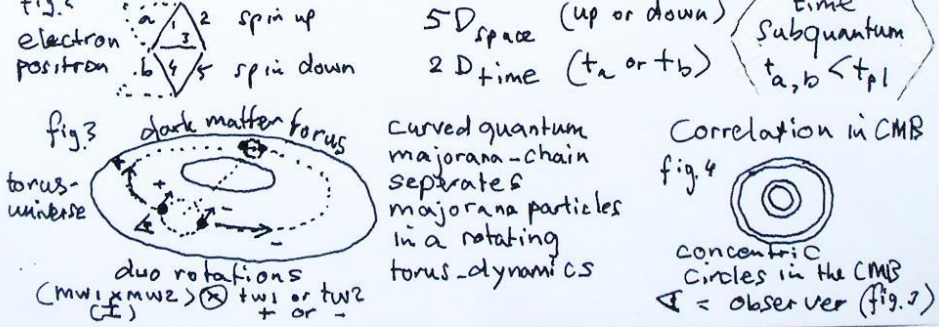 fig.2
a 1 2 spin up
electron 3
positron .b 4 5 spin down
5 D space (up or down)
2 D time (ta or tb)
time
subquantum
ta,b < tpl
fig 3 dark matter torus
torus-
universe
+
-
-
duo rotations
(mw1 x mw2) ⊗ tw1 or tw2
(I) + or -
curved quantum
majorana-chain
seperates
majorana particles
in a rotating
torus-dynamics
Correlation in CMB
fig. 4
concentric
circles in the CMB
= observer (fig. 3)